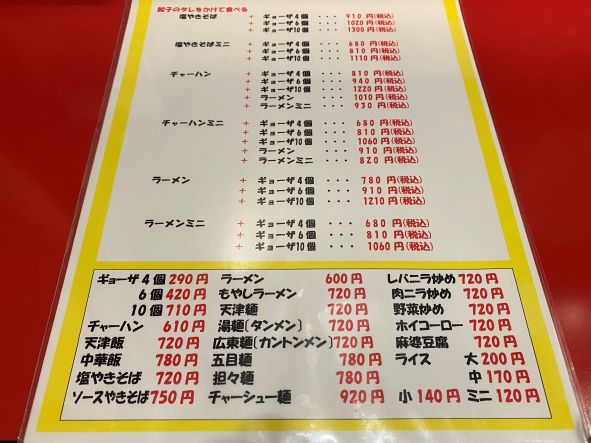 餃子のタレをかけて食べる
塩やきそば + ギョーザ4個 ・・・ 910円(税込)
+ ギョーザ6個 ・・・ 1020円(税込)
+ ギョーザ10個 ・・・ 1300円(税込)
塩やきそばミニ + ギョーザ4個 ・・・ 680円(税込)
+ ギョーザ6個 ・・・ 810円(税込)
+ ギョーザ10個 ・・・ 1110円(税込)
チャーハン + ギョーザ4個 ・・・ 810円(税込)
+ ギョーザ6個 ・・・ 940円(税込)
+ ギョーザ10個 ・・・ 1220円(税込)
+ ラーメン ・・・ 1010円(税込)
+ ラーメンミニ ・・・ 930円(税込)
チャーハンミニ + ギョーザ4個 ・・・ 680円(税込)
+ ギョーザ6個 ・・・ 810円(税込)
+ ギョーザ10個 ・・・ 1060円(税込)
+ ラーメン ・・・ 910円(税込)
+ ラーメンミニ ・・・ 820円(税込)
ラーメン + ギョーザ4個 ・・・ 780円(税込)
+ ギョーザ6個 ・・・ 910円(税込)
+ ギョーザ10個 ・・・ 1210円(税込)
ラーメンミニ + ギョーザ4個 ・・・ 680円(税込)
+ ギョーザ6個 ・・・ 810円(税込)
+ ギョーザ10個 ・・・ 1060円(税込)
ギョーザ4個 290円 ラーメン 600円 レバニラ炒め 720円
6個 420円 もやしラーメン 720円 肉ニラ炒め 720円
10個 710円 天津麺 720円 野菜炒め 720円
チャーハン 610円 湯麺(タンメン) 720円 ホイコーロー 720円
天津飯 720円 広東麺(カントンメン) 720円 麻婆豆腐 720円
中華飯 780円 五目麺 780円 ライス 大 200円
塩やきそば 720円 担々麺 780円 中 170円
ソースやきそば 750円 チャーシュー麺 920円 小 140円 ミニ 120円